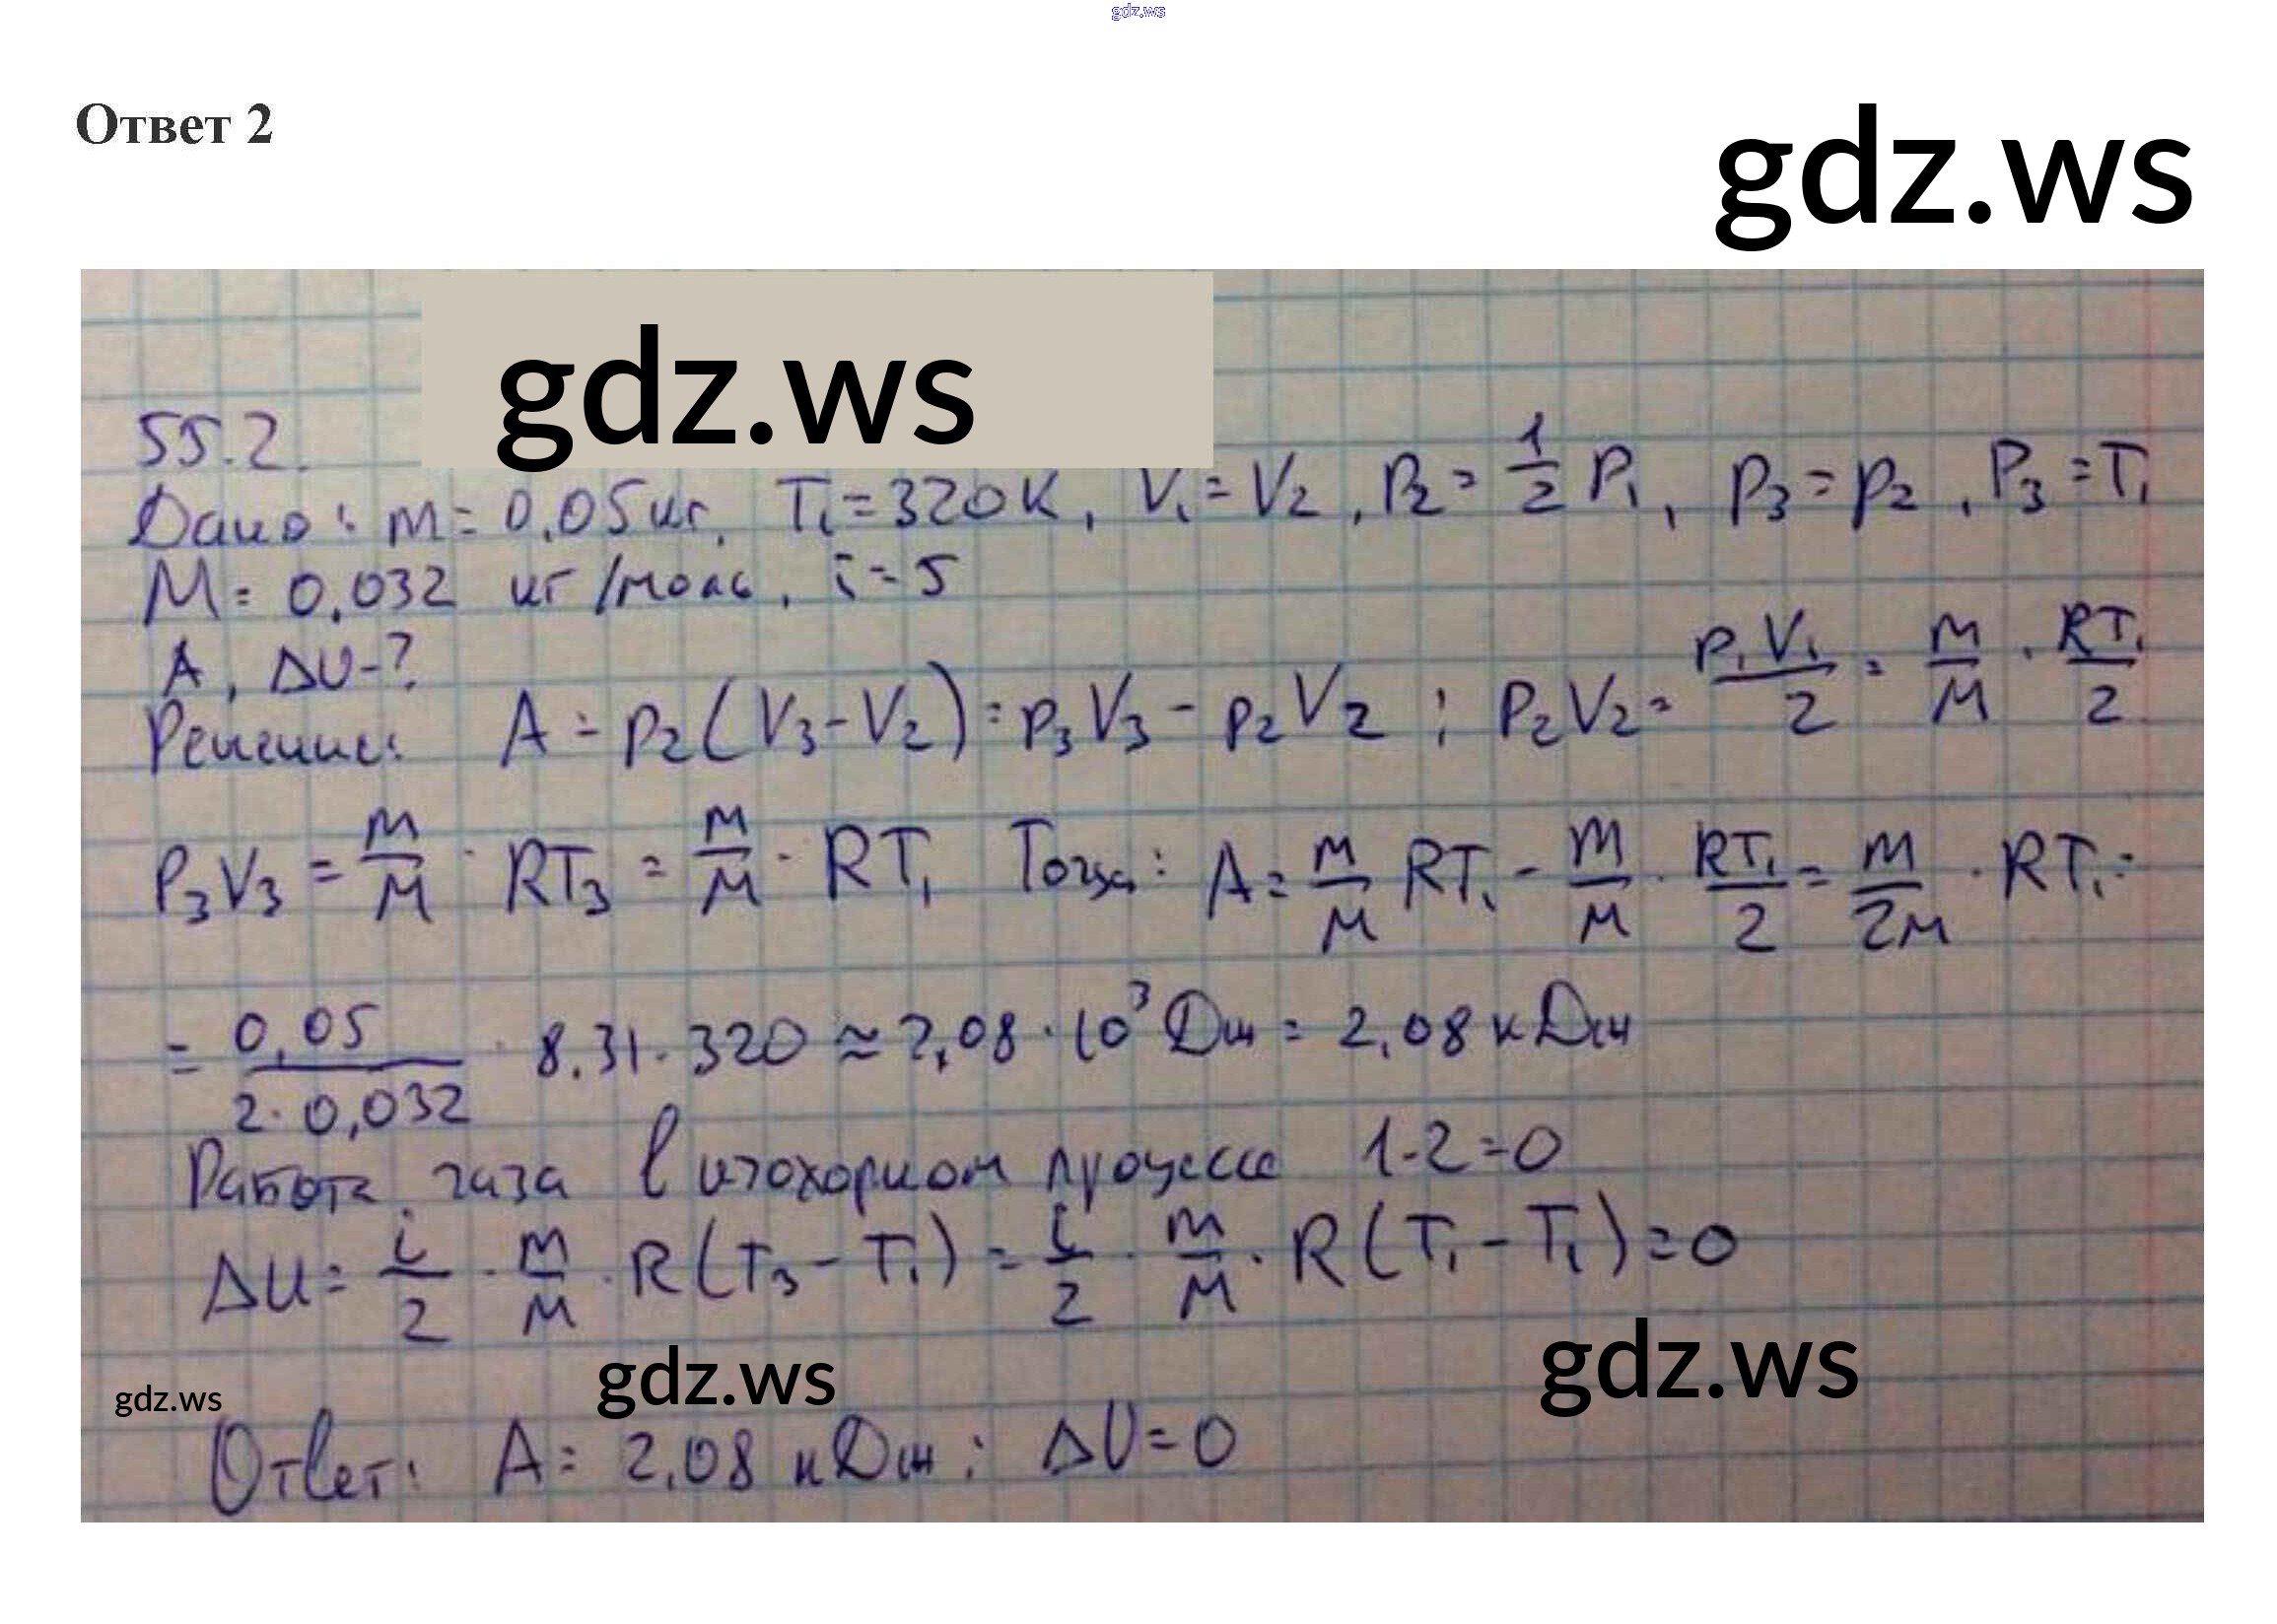 gdz.ws
Ответ 2
gdz.ws
gdz.ws
55.2.
Дано: m = 0,05 кг, T₁ = 320 К, V₁ = V₂, P₂ = 1/2 P₁, P₃ = P₂, P₃ = T₁
M = 0,032 кг/моль, i = 5
A, ΔU - ?
Решение: A = p₂(V₃ - V₂) = p₃V₃ - p₂V₂; P₂V₂ = P₁V₁/2 = m/M · RT₁/2
P₃V₃ = m/M · RT₃ = m/M · RT₁ Тогда: A = m/M RT₁ - m/M · RT₁/2 = m/2M · RT₁ =
= 0,05/2·0,032 · 8,31 · 320 ≈ 2,08 · 10³ Дж = 2,08 кДж
Работа газа в изохорном процессе 1-2 = 0
ΔU = i/2 · m/M · R(T₃ - T₁) = i/2 · m/M · R(T₁ - T₁) = 0
gdz.ws
gdz.ws
gdz.ws
Ответ: A = 2,08 кДж; ΔU = 0